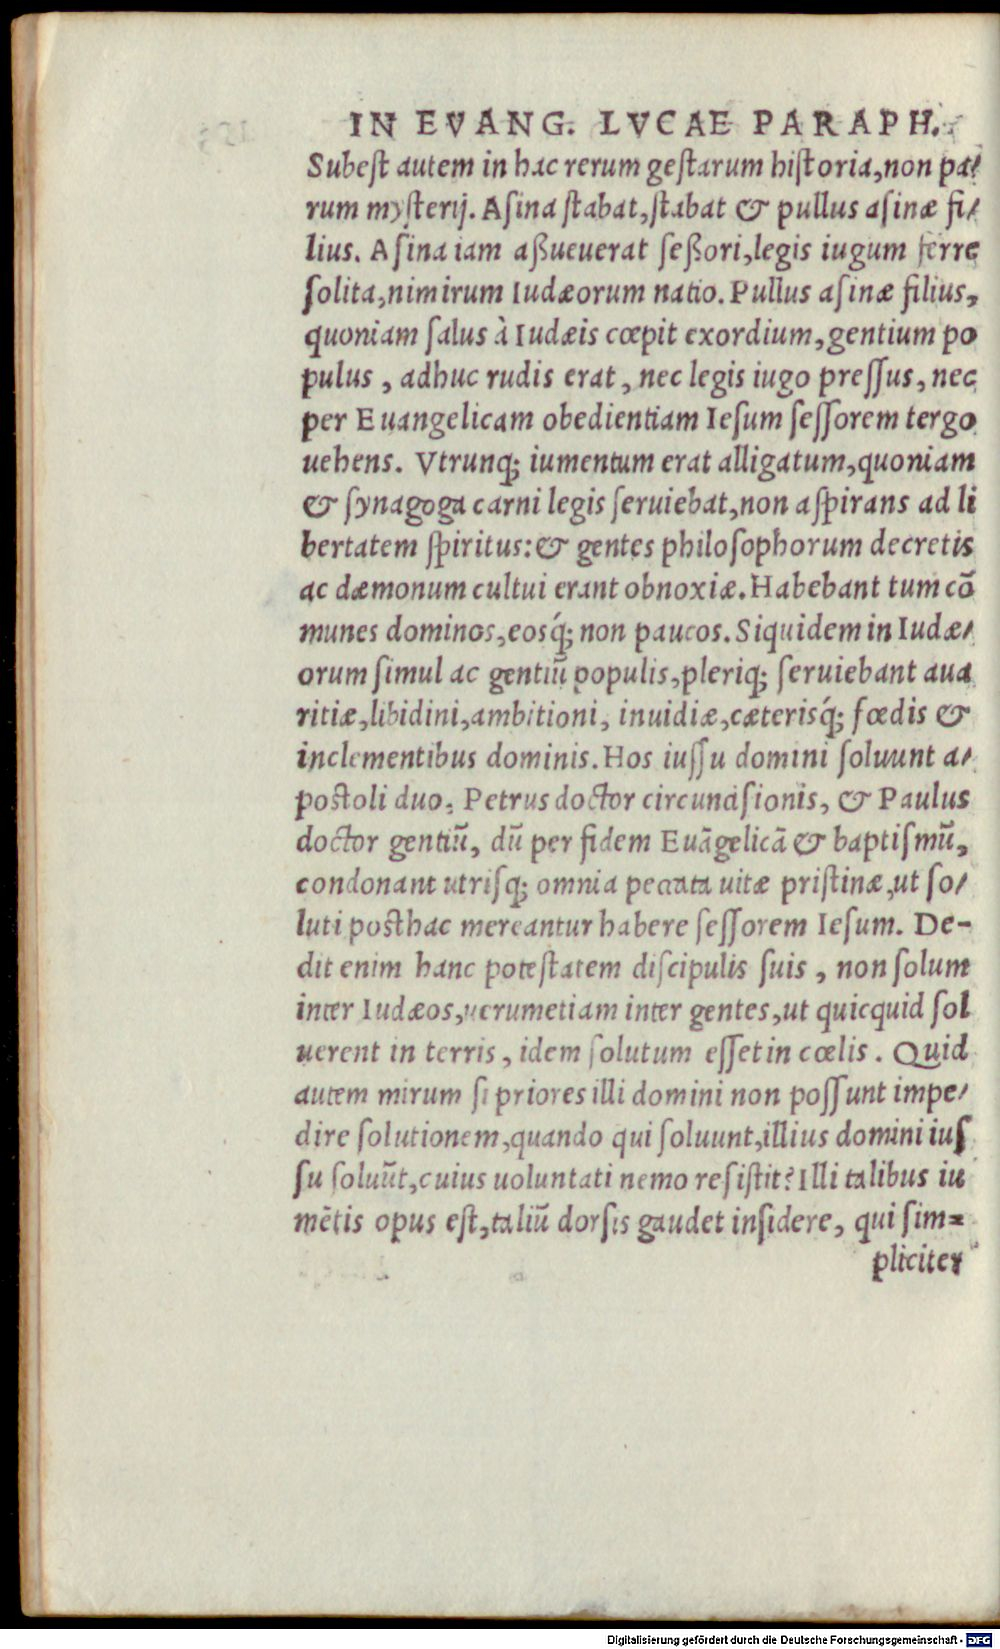 IN EVANG. LVCAE PARAPH.
Subest autem in hac rerum gestarum historia, non pa⸗
rum mysterij. Asina stabat, stabat & pullus asinæ fi⸗
lius. Asina iam aßueuerat seßori, legis iugum ferre
solita, nimirum Iudæorum natio. Pullus asinæ filius,
quoniam salus à Iudæis cœpit exordium, gentium po
pulus, adhuc rudis erat, nec legis iugo pressus, nec
per Euangelicam obedientiam Iesum sessorem tergo
uehens. Vtrunq; iumentum erat alligatum, quoniam
& synagoga carni legis seruiebat, non aspirans ad li
bertatem spiritus: & gentes philosophorum decretis
ac dæmonum cultui erant obnoxiæ. Habebant tum cō
munes dominos, eosq́; non paucos. Siquidem in Iudæ⸗
orum simul ac gentiū populis, pleriq; seruiebant aua
ritiæ, libidini, ambitioni, inuidiæ, cæterisq́; fœdis &
inclementibus dominis. Hos iussu domini soluunt a⸗
postoli duo, Petrus doctor circuncisionis, & Paulus
doctor gentiū, dū per fidem Euāgelicā & baptismū,
condonant utrisq; omnia peccata uitæ pristinæ, ut so⸗
luti posthac mereantur habere sessorem Iesum. De-
dit enim hanc potestatem discipulis suis, non solum
inter Iudæos, uerumetiam inter gentes, ut quicquid sol
uerent in terris, idem solutum esset in cœlis. Quid
autem mirum si priores illi domini non possunt impe⸗
dire solutionem, quando qui soluunt, illius domini ius
su soluūt, cuius uoluntati nemo resistit? Illi talibus iu
mētis opus est, taliū dorsis gaudet insidere, qui sim⸗
pliciter
Digitalisierung gefördert durch die Deutsche Forschungsgemeinschaft - DFG